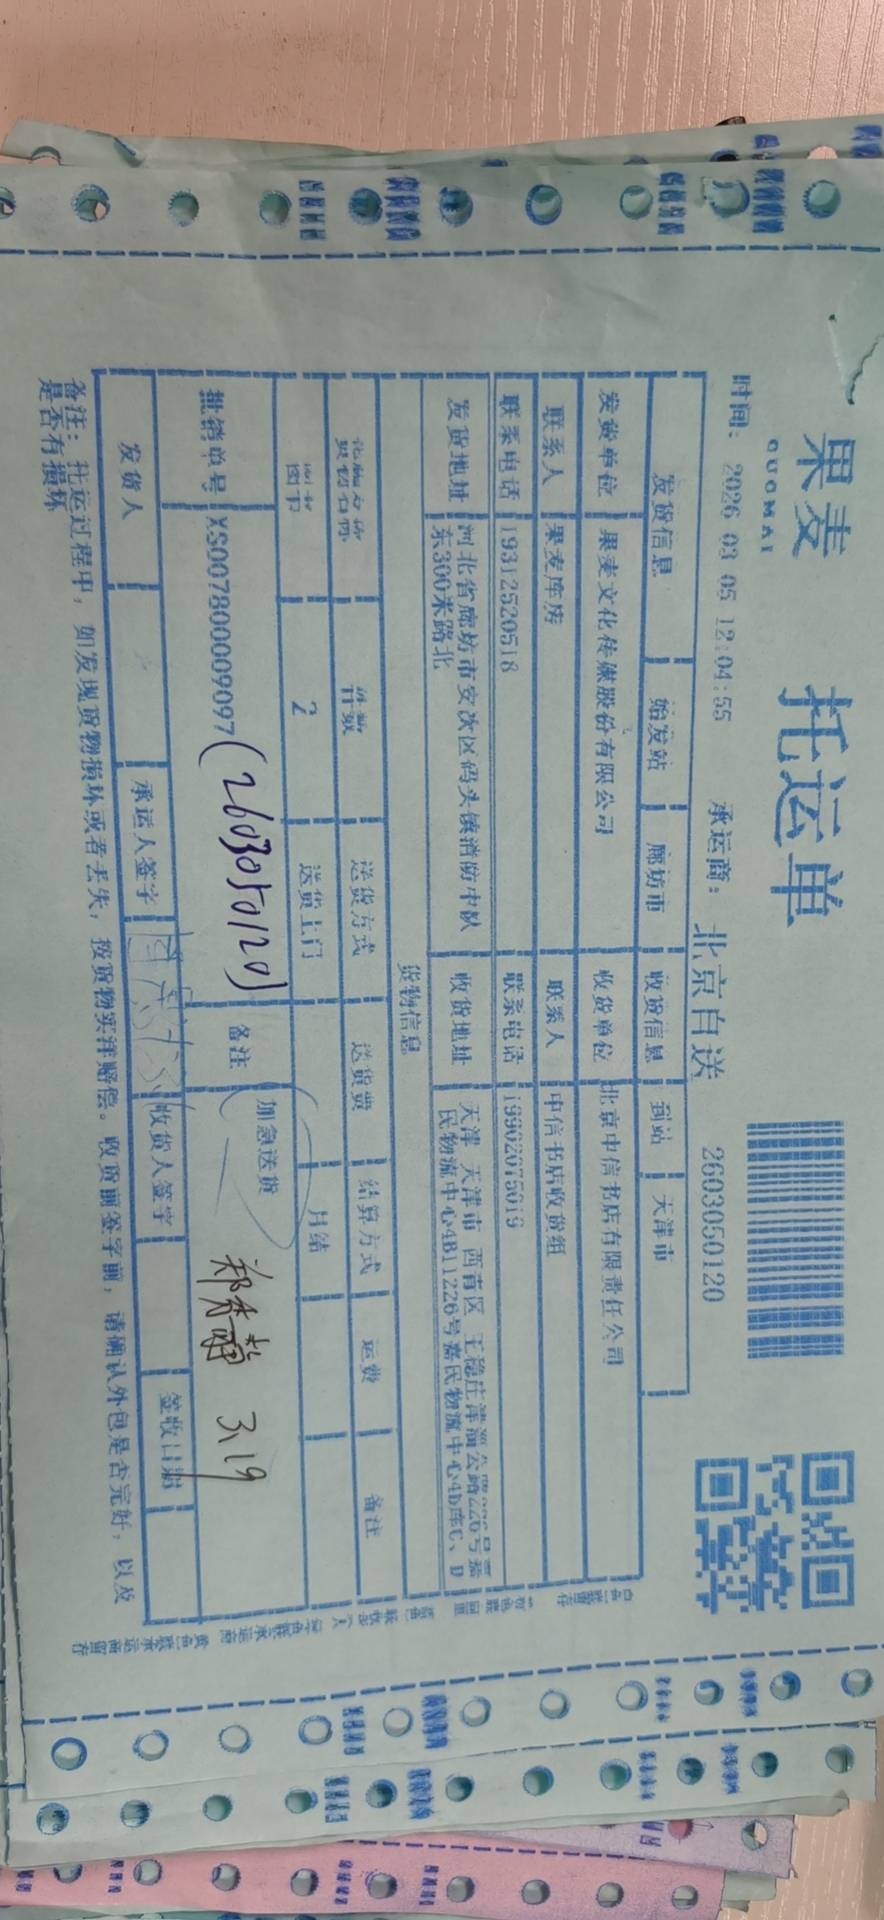 果麦
GUOMAI
托运单
时间: 2026 03 05 12:04:55 承运商: 北京自送 2603050120
发货信息 始发站 廊坊市 收货信息 到站 天津市
发货单位 果麦文化传媒股份有限公司 收货单位 北京中信书店有限责任公司
联系人 果麦库房 联系人 中信书店收货组
联系电话 19312520518 联系电话 19902075019
发货地址 河北省廊坊市安次区码头镇消防中队 收货地址 天津 天津市 西青区 王稳庄津淄公路226号嘉
东300米路北 民物流中心4B11226号嘉民物流中心4b库C、D
货物信息
货物名称 件数 送货方式 送货费 结算方式 运费 备注
图书 2 送货上门 月结
批销单号 XS00780009097 (2603050120) 备注 加急送货
郑春萌 3.19
发货人 承运人签字 收货人签字 签收日期
备注: 托运过程中, 如发现货物损坏或者丢失, 按货物实洋赔偿。收货前签字前, 请确认外包是否完好, 以及
是否有损坏